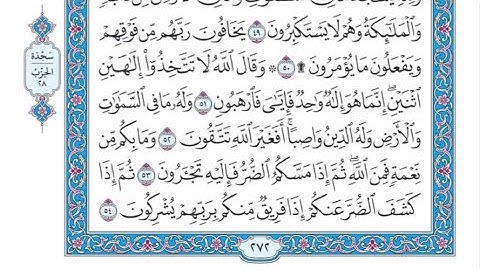 وَٱلۡمَلَٰٓئِكَةُ وَهُمۡ لَا يَسۡتَكۡبِرُونَ ٤٩ يَخَافُونَ رَبَّهُم مِّن فَوۡقِهِمۡ
وَيَفۡعَلُونَ مَا يُؤۡمَرُونَ ۩ ٥٠ ۞ وَقَالَ ٱللَّهُ لَا تَتَّخِذُوٓاْ إِلَٰهَيۡنِ
ٱثۡنَيۡنِۖ إِنَّمَا هُوَ إِلَٰهٞ وَٰحِدٞ فَإِيَّٰيَ فَٱرۡهَبُونِ ٥١ وَلَهُۥ مَا فِي ٱلسَّمَٰوَٰتِ
وَٱلۡأَرۡضِ وَلَهُ ٱلدِّينُ وَاصِبًاۚ أَفَغَيۡرَ ٱللَّهِ تَتَّقُونَ ٥٢ وَمَا بِكُم مِّن
نِّعۡمَةٖ فَمِنَ ٱللَّهِۖ ثُمَّ إِذَا مَسَّكُمُ ٱلضُّرُّ فَإِلَيۡهِ تَجۡـَٔرُونَ ٥٣ ثُمَّ إِذَا
كَشَفَ ٱلضُّرَّ عَنكُمۡ إِذَا فَرِيقٞ مِّنكُم بِرَبِّهِمۡ يُشۡرِكُونَ ٥٤
٢٧٢
سَجْدَة
الحِزْب
٢٨